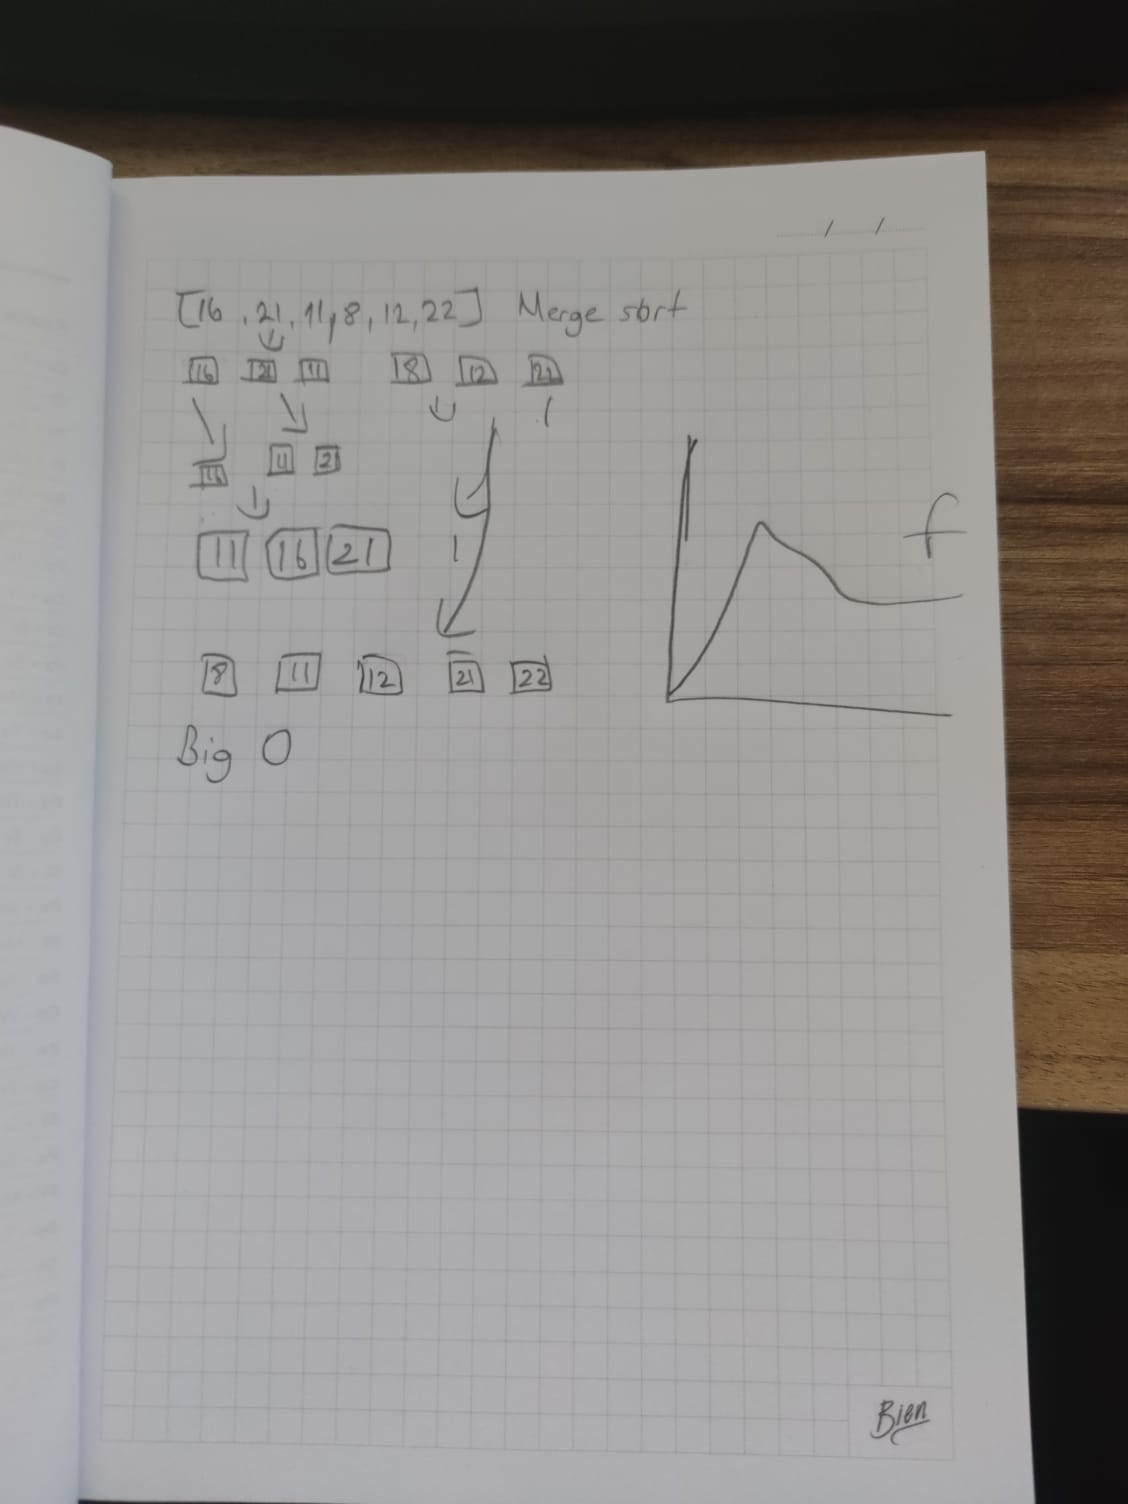 [16, 21, 11, 8, 12, 22] Merge sort
16 21 11 8 12 22
16 11 21
11 16 21
8 11 12 21 22
Big O
f
Bien